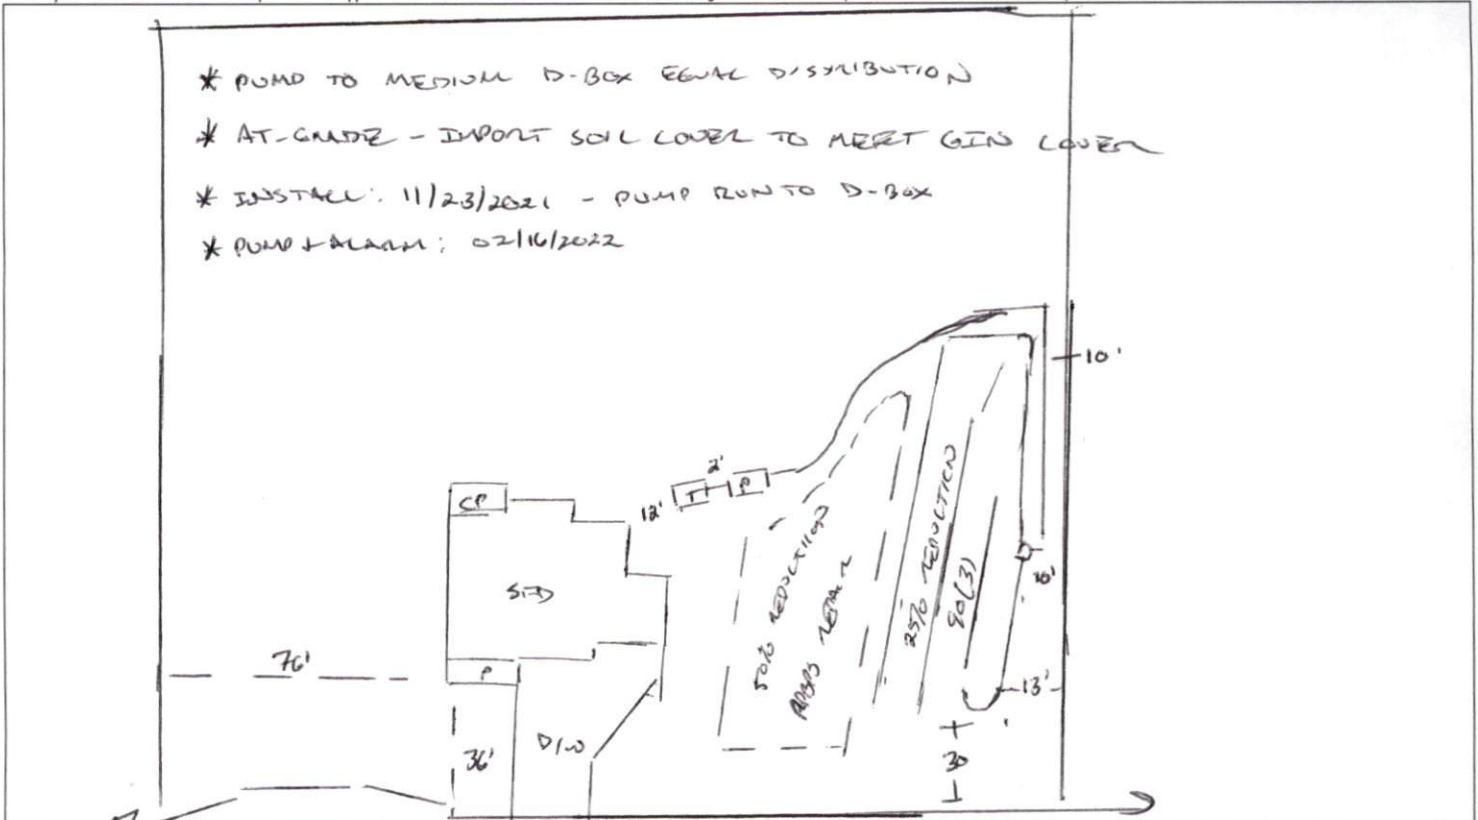 * PUMP TO MEDIUM D-BOX EQUAL DISTRIBUTION
* AT-GRADE - IMPORT SOIL COVER TO MEET 6IN COVER
* INSTALL: 11/23/2021 - PUMP RUN TO D-BOX
* PUMP + ALARM: 02/16/2022
10'
2'
T
P
12'
CP
SFD
50% REDUCTION
REPAIR
25% REDUCTION
90(3)
10'
76'
P
13'
D/W
36'
30